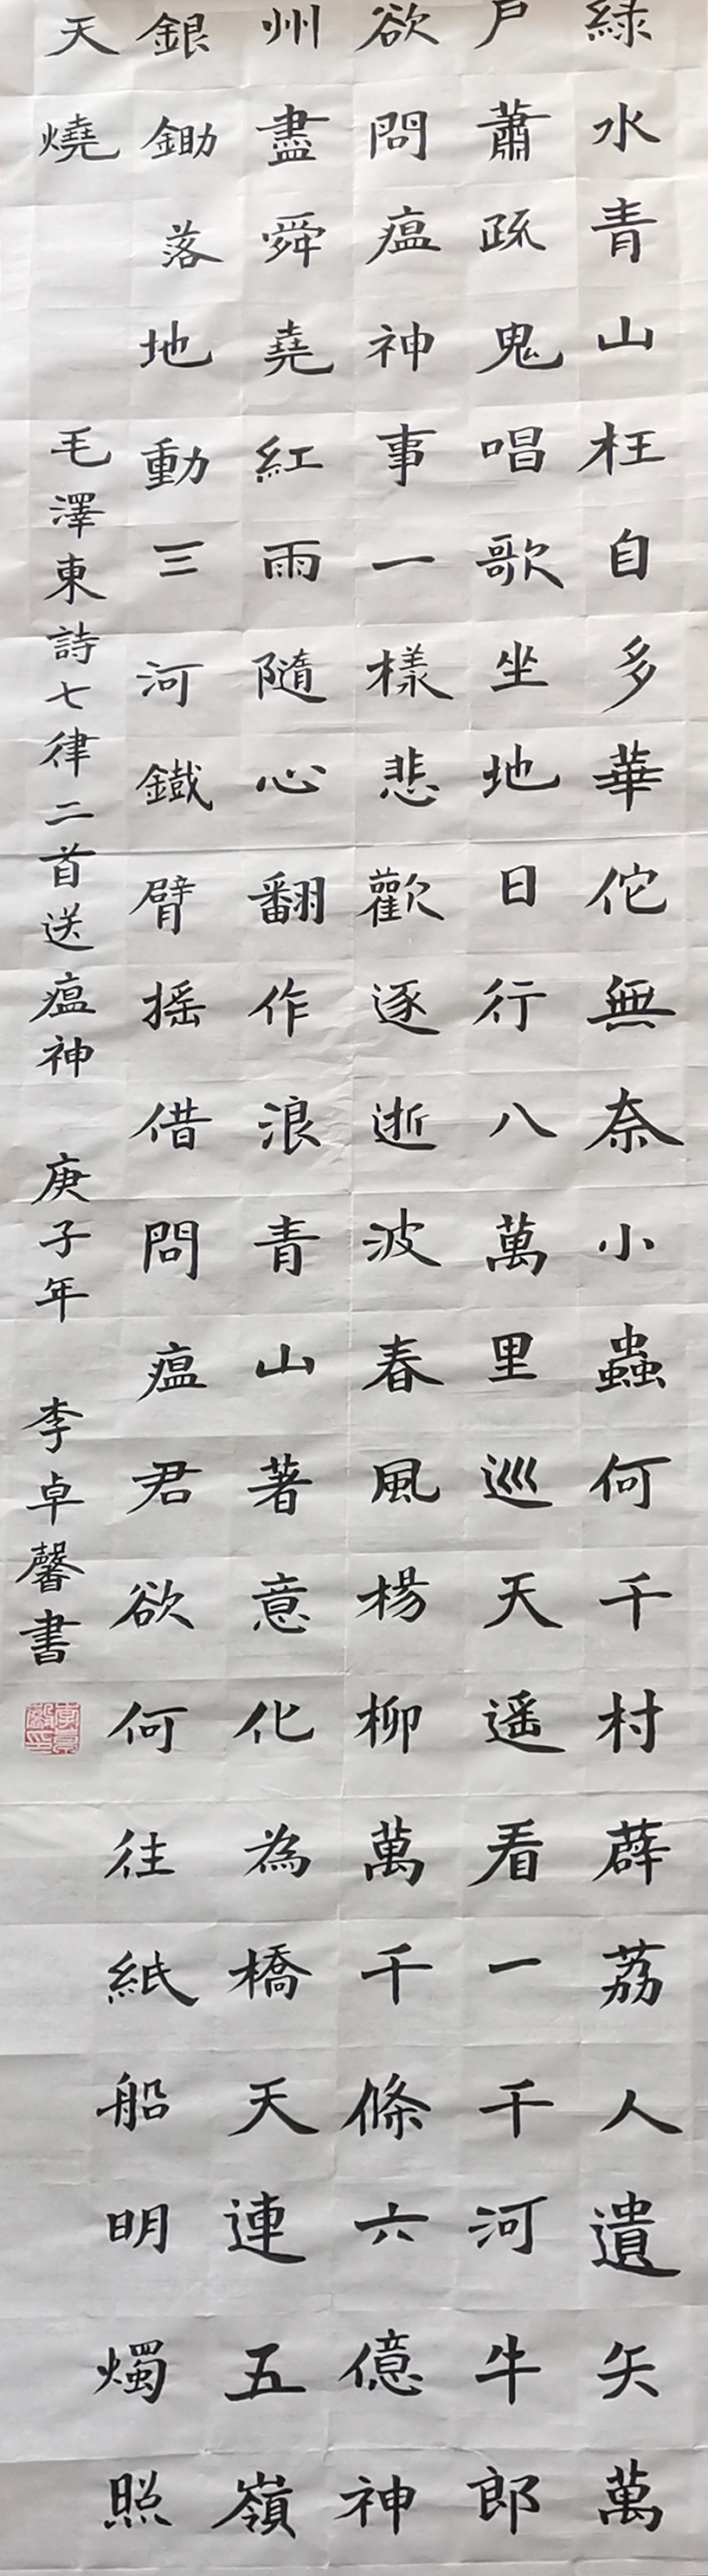 緑水青山枉自多華佗無奈小蟲何千村薜荔人遺矢萬
戸蕭疏鬼唱歌坐地日行八萬里巡天遥看一千河牛郎
欲問瘟神事一樣悲歡逐逝波春風楊柳萬千條六億神
州盡舜堯紅雨隨心翻作浪青山著意化為橋天連五嶺
銀鋤落地動三河鐵臂摇借問瘟君欲何往紙船明燭照
天燒
毛澤東詩七律二首送瘟神 庚子年 李卓馨書